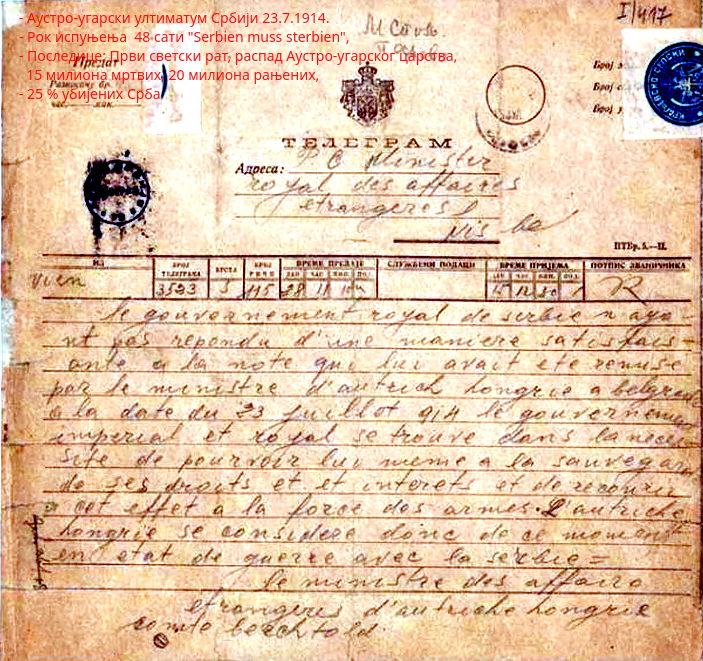 - Аустро-угарски ултиматум Србији 23.7.1914.
- Рок испуњења 48 сати "Serbien muss sterbien",
- Последице: Први светски рат, распад Аустро-угарског царства,
15 милиона мртвих, 20 милиона рањених,
- 25 % убијених Срба
I/417
Предат
Број
Број
Број
ТЕЛЕГРАМ
Адреса: Minister
royal des affaires
etrangeres
Nis
ПТБр. 5.—II.
ИЗ БРОЈ ТЕЛЕГРАМА ВРСТА БРОЈ РЕЧИ ВРЕМЕ ПРЕДАЈЕ СЛУЖБЕНИ ПОДАЦИ ВРЕМЕ ПРИЈЕМА ПОТПИС ЗВАНИЧНИКА
vien 3523 115 28 11 15 12 30 R
le gouvernement royal de serbie n aya-
nt pas repondu d'une maniere satisfais=
ante a la note qui lui avait ete remise
par le ministre d'autrich hongrie a belgrade
a la date du 23 juillot 914 le gouvernement
imperial et royal se trouve dans la neces-
site de pourvoir lui meme a la sauvegar
de ses droits et et interets et de recourir
a cet effet a la force des armes. L'autriche
hongrie se considere donc de ce moment
en etat de guerre avec la serbie=
le ministre des affaire
etrangeres d'autriche hongrie
comte berchtold